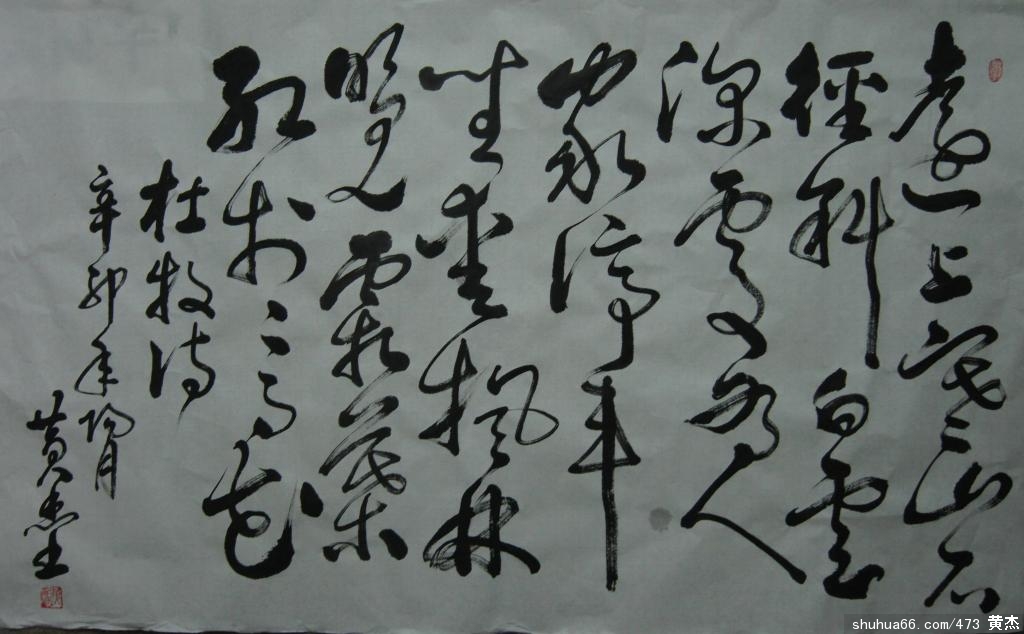 遠上寒山石
徑斜白雲
深處有人
家停車
坐愛楓林
晚霜葉
紅於二月花
杜牧詩
辛卯年月
黄
shuhua66.com/473 黄杰